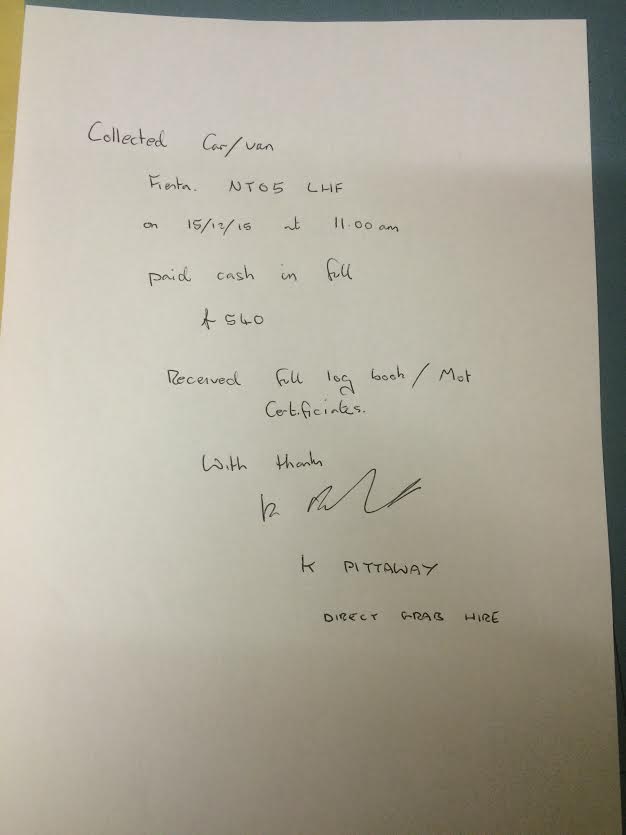 Collected Car/van
Fiesta. NT05 LHF
on 15/12/15 at 11.00 am
paid cash in full
£540
Received full log book / Mot
Certificates.
With thanks
K PITTAWAY
DIRECT GRAB HIRE